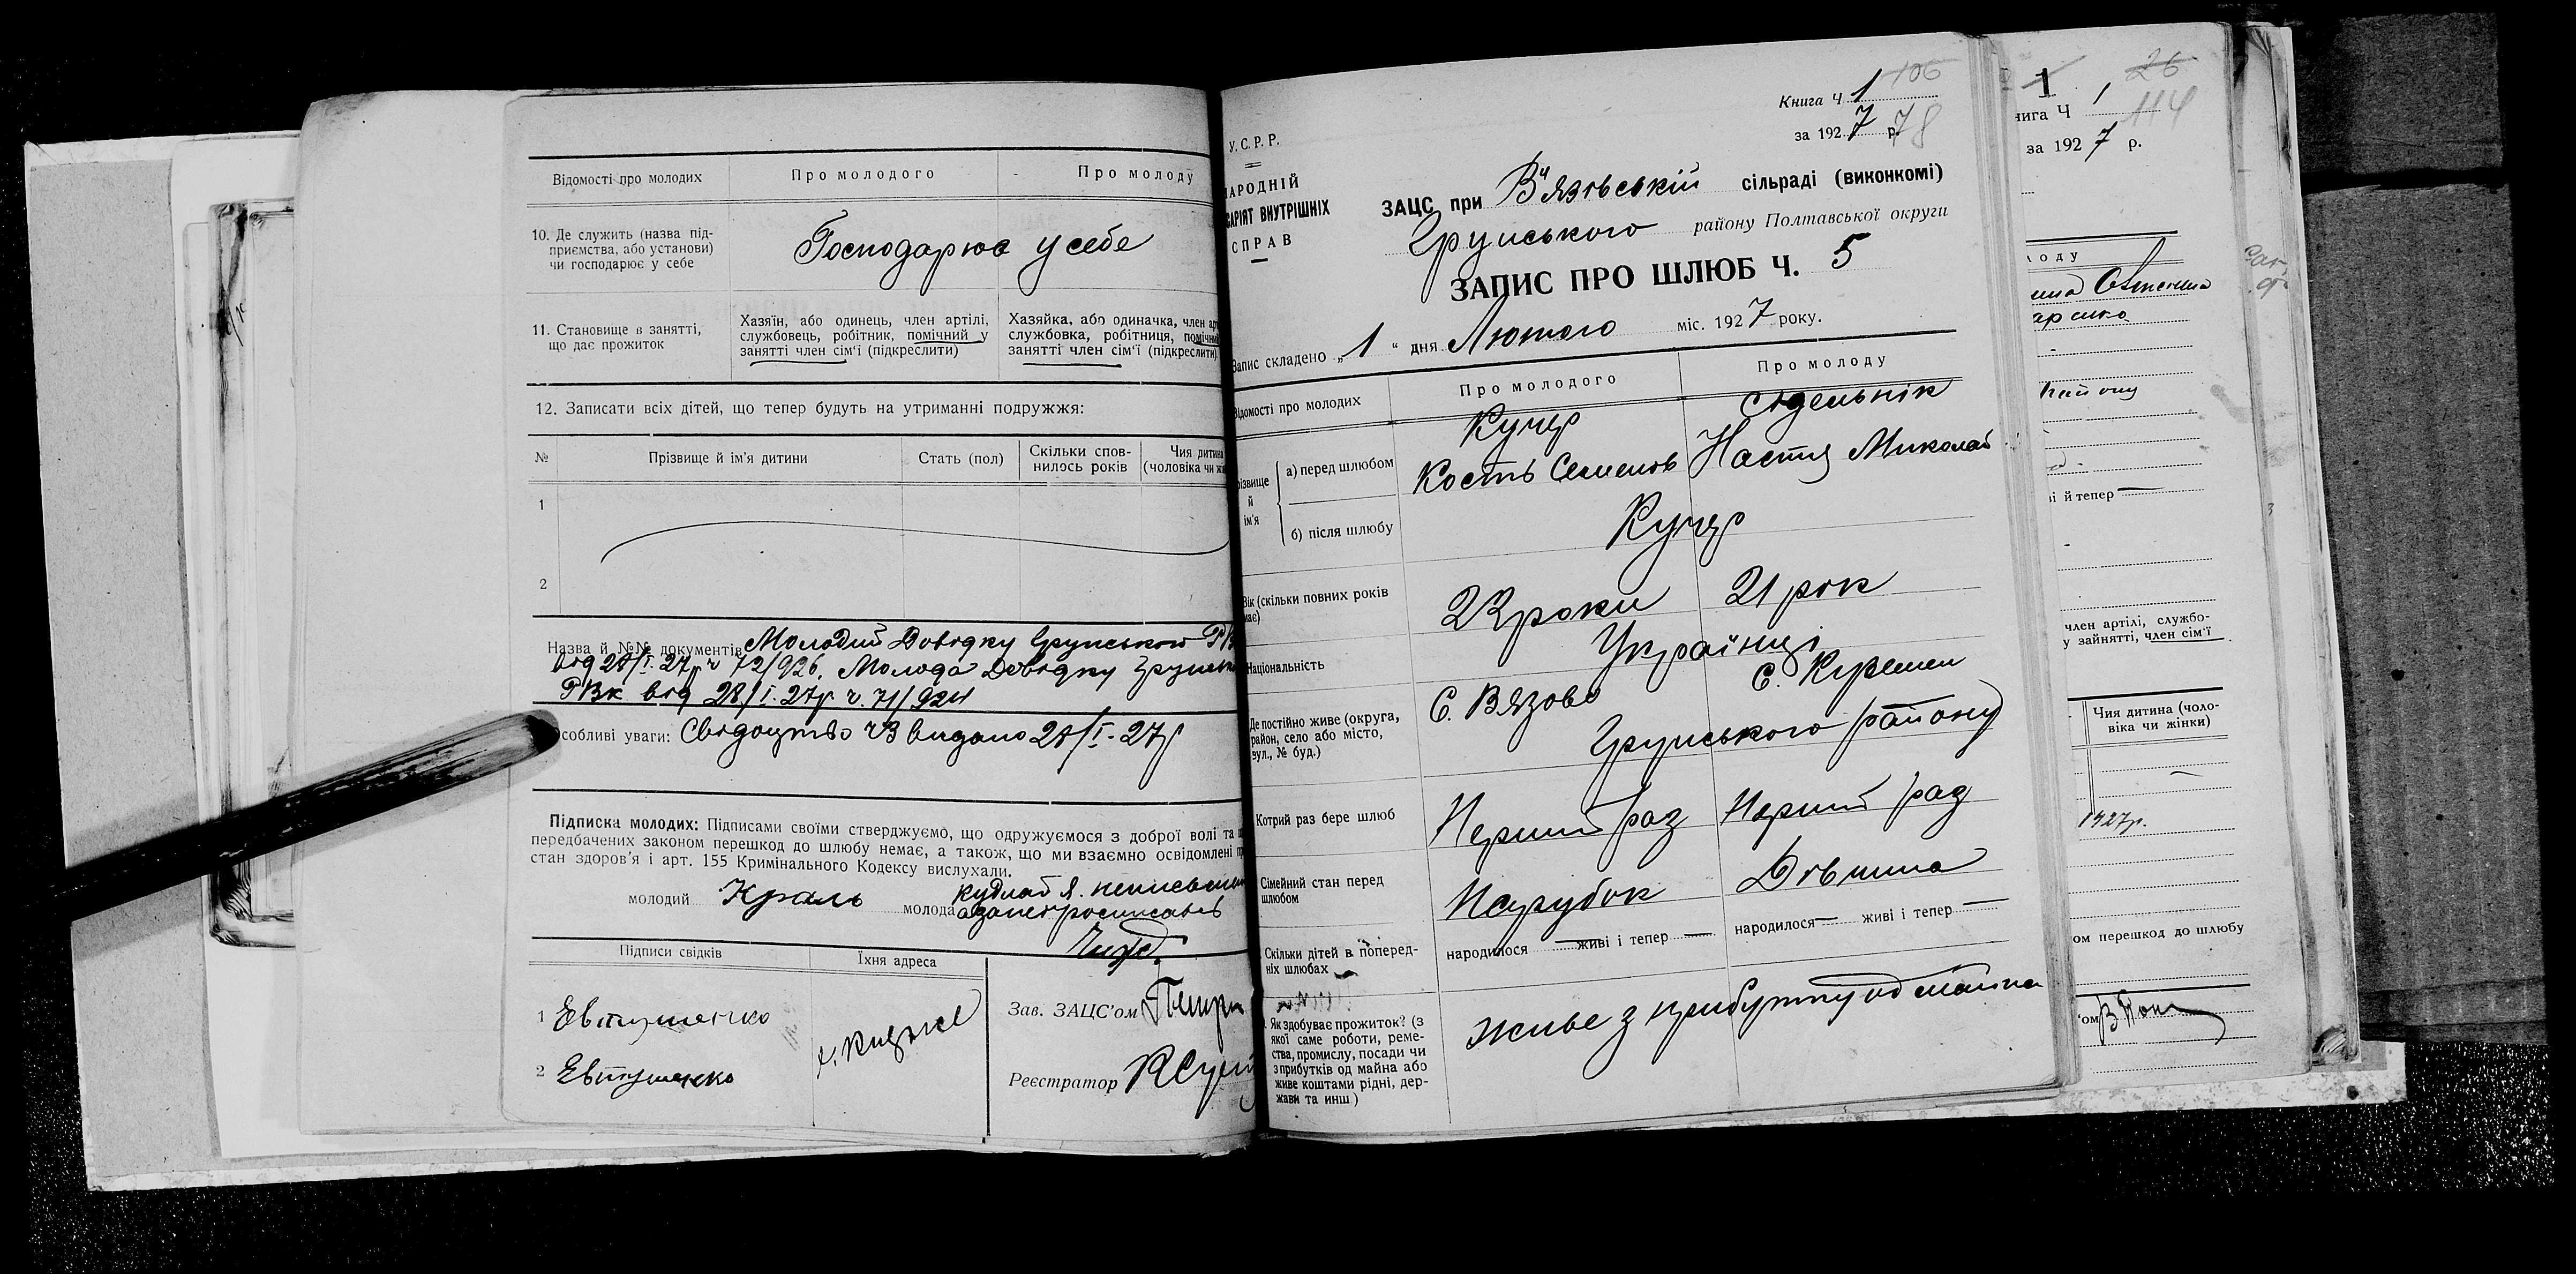 Відомості про молодих
Про молодого
Про молоду
10. Де служить (назва під-
приємства, або установи)
чи господарює у себе
Господарює у себе
11. Становище в занятті,
що дає прожиток
Хазяїн, або одинець, член артілі,
службовець, робітник, помічний у
занятті член сім'ї (підкреслити)
Хазяйка, або одиначка, член
службовка, робітниця,
занятті член сім'ї (підкреслити)
12. Записати всіх дітей, що тепер будуть на утриманні подружжя:
№
Прізвище й ім'я дитини
Стать (пол)
Скільки спов-
нилось років
Чия дитина
(чоловіка чи
1
2
Назва й №№ документів Молодий Довідку Грунського
від 28/I.27р ч 72/926. Молода Довідку
РВК від 28/I.27р. ч. 71/924
собливі уваги: Свідоцтво ч3 видано 28/I-27р
Підписка молодих: Підписами своїми стверджуємо, що одружуємося з доброї волі та
передбачених законом перешкод до шлюбу немає, а також, що ми взаємно освідомлені
стан здоров'я і арт. 155 Кримінального Кодексу вислухали.
молодий Краль
молода
Підписи свідків
Їхня адреса
1 Евтушенко
2 Евтушенко
Зав. ЗАЦС'ом
Реєстратор
У.С.Р.Р.
АРОДНІЙ
САРІЯТ ВНУТРІШНІХ
СПРАВ
106
Книга Ч 1
за 1927 р.
78
ЗАЦС при В'язовській сільраді (виконкомі)
Грунського району Полтавської округи
ЗАПИС ПРО ШЛЮБ Ч. 5
Запис складено „1“ дня Лютого міс. 1927 року.
Відомості про молодих
Про молодого
Про молоду
різвище
й
ім'я
а) перед шлюбом
Кучер
Кость Семенов
Сідельнік
Настя Миколаї
б) після шлюбу
Кучер
Вік (скільки повних років
має)
22 роки
21 рік
Національність
Українці
Де постійно живе (округа,
район, село або місто,
вул., № буд.)
С. Вязове
С.
Грунського району
Котрий раз бере шлюб
Перший раз
Перший раз
Сімейний стан перед
шлюбом
Парубок
Дівчина
Скільки дітей в поперед-
ніх шлюбах
народилося — живі і тепер —
народилося — живі і тепер —
Як здобуває прожиток? (з
якої саме роботи, реме-
ства, промислу, посади чи
з прибутків од майна або
живе коштами рідні, дер-
жави та инш.)
живе з прибутку од майна
1
26
нига Ч 1
114
за 1927 р.
лоду
району
і й тепер —
член артілі, службо-
у зайнятті, член сім'ї
Чия дитина (чоло-
віка чи жінки)
1927р.
ом перешкод до шлюбу
'ом